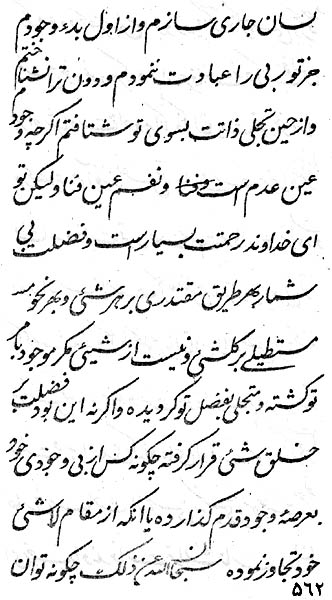 لسان جاری سازم و از اول بدء وجودم
جز تو ربی را عبادت ننمودم و دون ترا نشناختم
و از حین تجلی ذاتت بسوی تو شتافتم اگرچه وجود
عین عدم است و نفسم عین فنا ولیکن تو
ای خداوند رحمتت بسیار است و فضلت بی
شمار بهر طریق مقتدری بر هر شئی و بهر نحو
مستطیلی بر کلشئی و نیست از شیئی مگر موجود بامر
تو گشته و متجلی بفضل تو گردیده و اگر نه این بود فضلت بر
خلق شئی قرار گرفته چگونه کس از بی وجودی خود
بعرصهٔ وجود قدم گذارده یا آنکه از مقام لاشئی
خود تجاوز نموده سبحان الله عن ذلک چگونه توان
۵۶۲